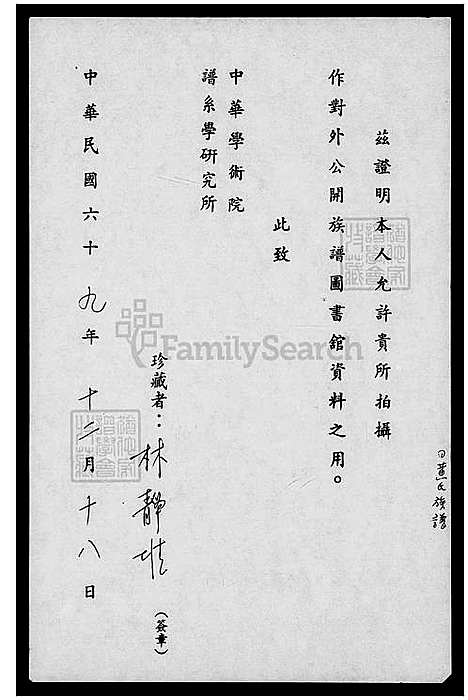 茲證明本人允許貴所拍攝
作對外公開族譜圖書館資料之用。
此致
中華學術院
譜系學研究所
珍藏者：林靜
（簽章）
中華民國六十九年十二月十八日
氏族譜
FamilySearch